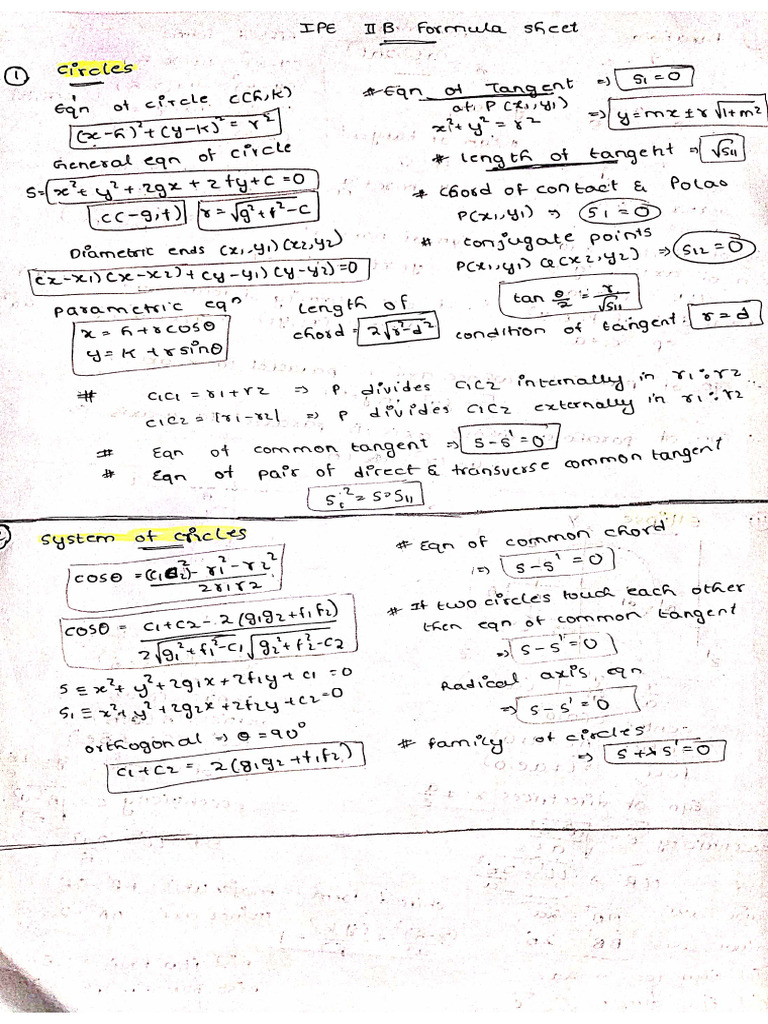 IPE II B Formula sheet
① Circles
Eqn of circle C(h,k)
(x-h)²+(y-k)²= r²
General eqn of circle
S= x²+y²+2gx+2fy+c=0
c(-g,f) r=√g²+f²-c
Diametric ends (x1,y1)(x2,y2)
(x-x1)(x-x2)+(y-y1)(y-y2)=0
parametric eqn
x = h+rcosθ
y = k+rsinθ
length of
chord= 2√r²-d²
# Eqn of Tangent => S1=0
at P(x1,y1)
x²+y²=r² => y=mx±r√1+m²
# length of tangent => √S11
# chord of contact & Polao
P(x1,y1) => S1=0
# conjugate points
P(x1,y1) Q(x2,y2) => S12=0
tan θ/2 = r/√S11
condition of tangent: r=d
# C1C1 = r1+r2 => P divides C1C2 internally in r1:r2
C1C2 = |r1-r2| => P divides C1C2 externally in r1:r2
# Eqn of common tangent => S-S'=0
# Eqn of pair of direct & transverse common tangent
St²=S·S11
System of circles
cosθ = (C1C2)²-r1²-r2² / 2r1r2
cosθ = C1+C2-2(g1g2+f1f2) / 2√g1²+f1²-c1 √g2²+f2²-c2
S ≡ x²+y²+2g1x+2f1y+c1=0
S1 ≡ x²+y²+2g2x+2f2y+c2=0
orthogonal => θ=90°
C1+C2 = 2(g1g2+f1f2)
# Eqn of common chord
=> S-S'=0
# If two circles touch each other
then eqn of common tangent
=> S-S'=0
Radical axis eqn
=> S-S'=0
# family of circles
=> S+λS'=0